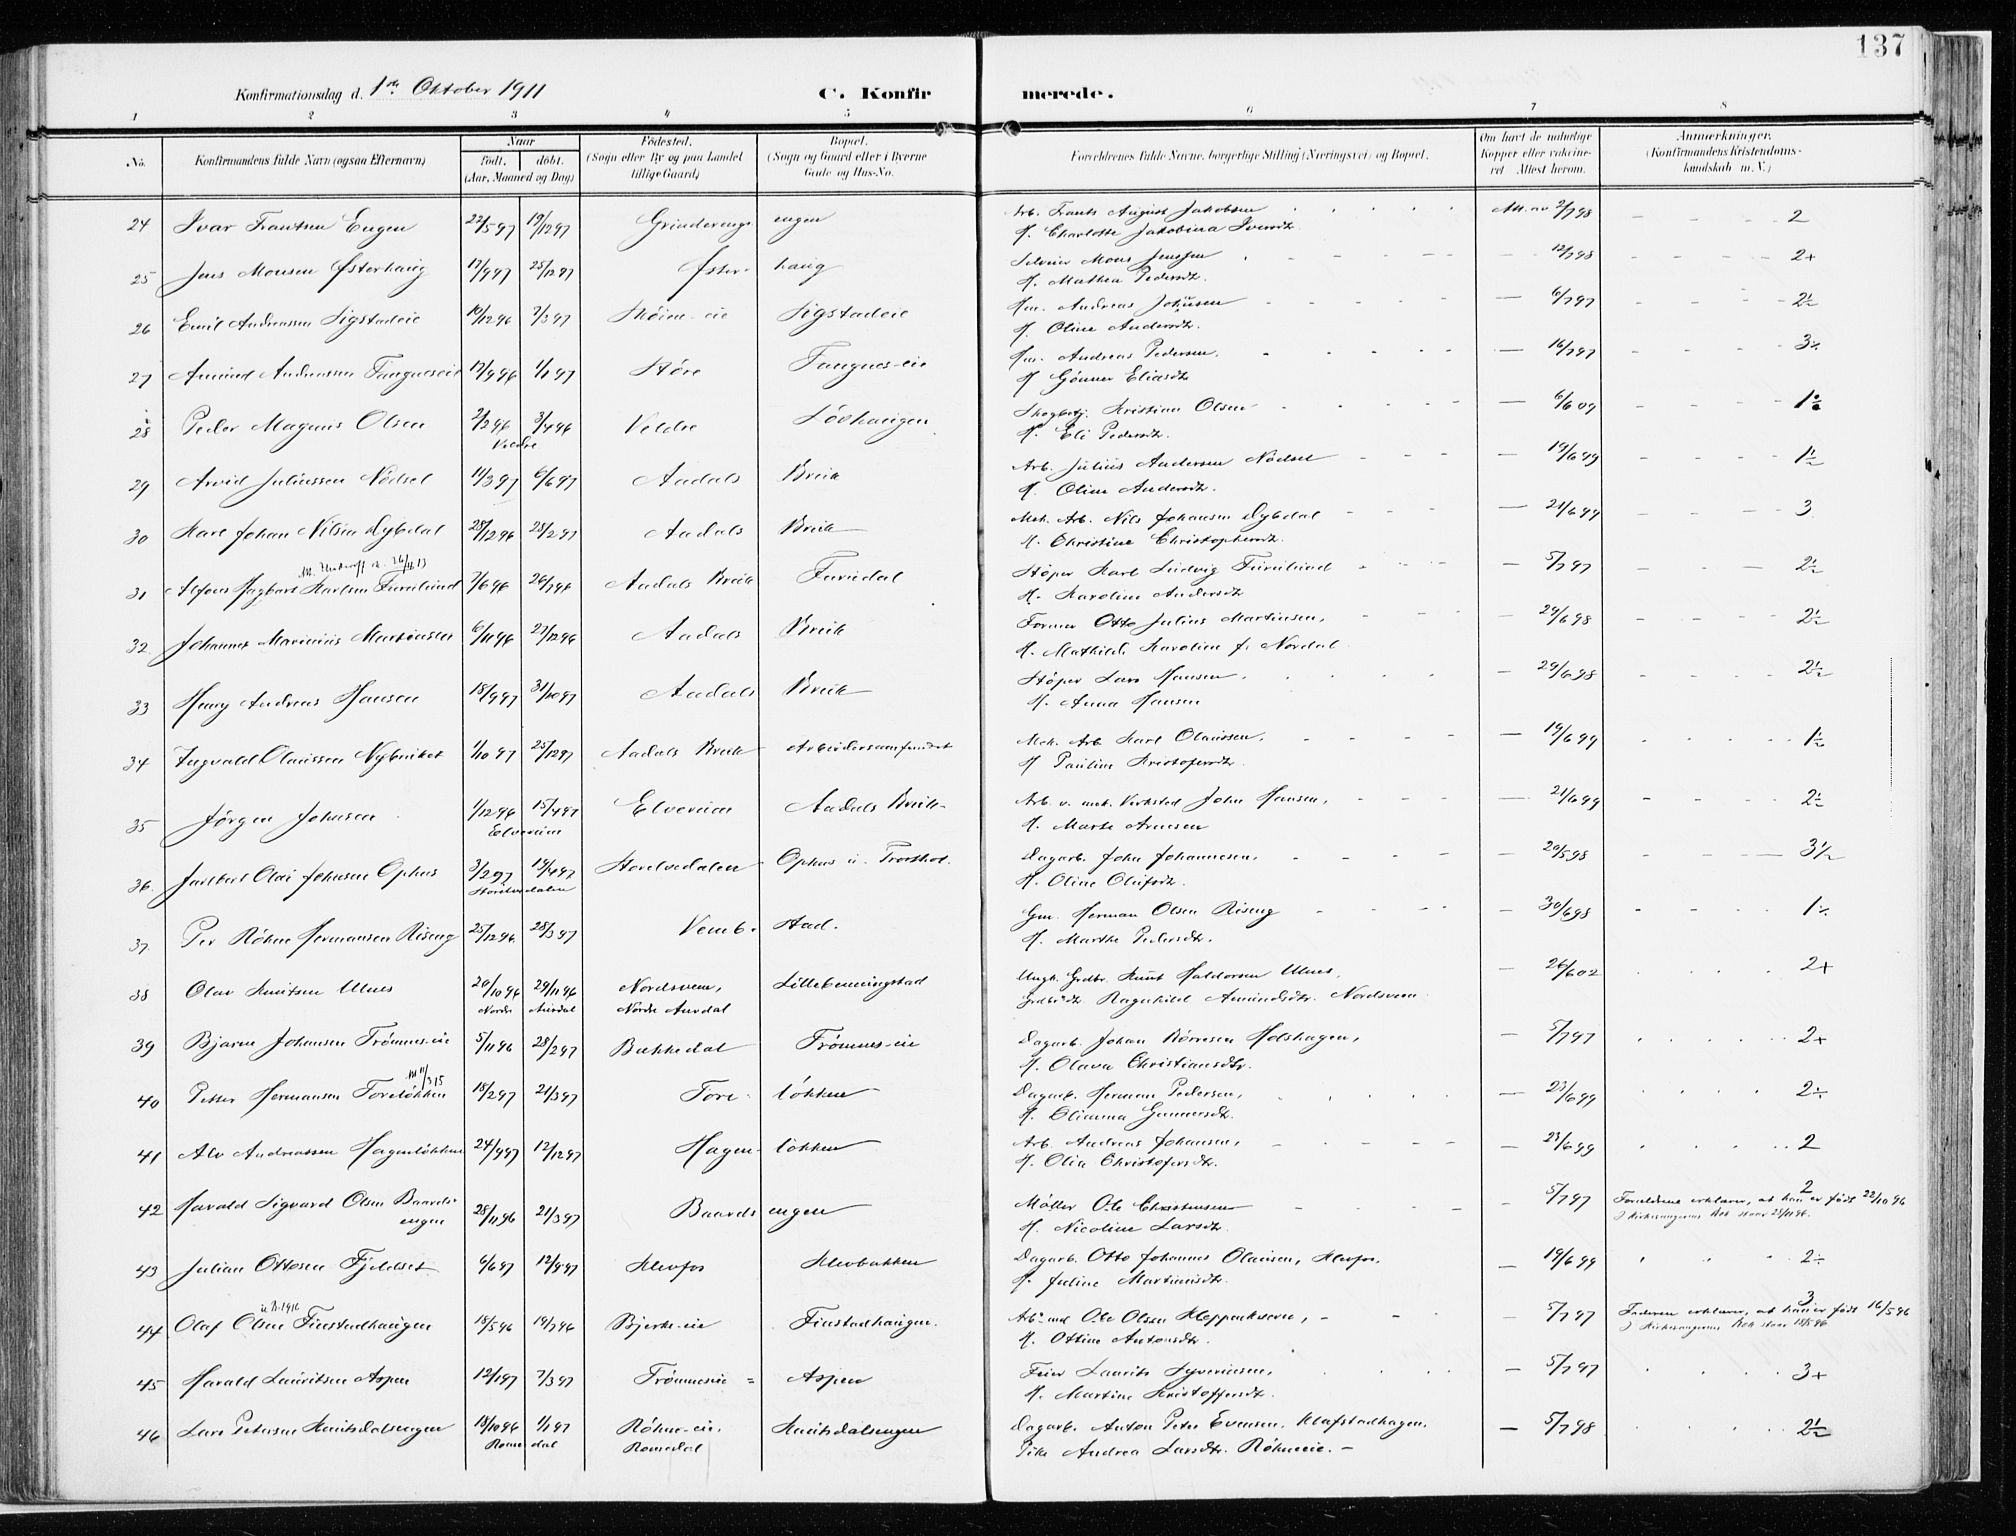 137
Konfirmationsdag d. 1ste Oktober 1911 C. Konfirmerede.
1 2 3 4 5 6 7 8
No. Konfirmandens fulde Navn (ogsaa Efternavn) Naar født. døbt. (Aar, Maaned og Dag) Fødested. (Sogn eller By og paa Landet tillige Gaard) Bopæl. (Sogn og Gaard eller i Byerne Gade og Hus-No. Forældrenes fulde Navne, borgerlige Stilling (Næringsvei) og Bopæl. Om havt de naturlige Kopper eller vaccineret. Attest herom. Anmærkninger. (Konfirmandens Kristendomskundskab m. V.)
24 Ivar Frantsen Engen 22/5 97 19/12 97 Grinderengen Arb. Frants August Jakobsen Att. av 2/7 98 2
H. Charlotte Jakobina Iversdt.
25 Jens Monsen Østerhaug 17/9 97 25/12 97 Østerhaug Selveier Mons Jensen — 12/7 98 2+
H. Mathea Pedersdt.
26 Emil Andreassen Sigstadeie 10/12 96 7/3 97 Skøien-eie Sigstadeie Hm. Andreas Johnsen — 6/7 97 2½
H. Oline Andersdt.
27 Amund Andreassen Tangneseie 17/9 96 1/1 97 Støre Tangnes-eie Hm. Andreas Pedersen. — 16/7 97 3÷
H Gønner Eliasdt
28 Peder Magnus Olsen 2/2 96 3/4 96 Veldre Lövhaugen Skogbetj. Kristian Olsen — 6/6 09 1½
Veldre H. Eli Pedersdt.
29 Arvid Juliussen Nødset 11/3 97 6/6 97 Aadals Bruk Arb. Julius Andersen Nødset — 19/6 99 1½
H. Oline Andersdt.
30 Karl Johan Nilsen Dybdal 28/12 96 28/2 97 Aadals Bruk Mek. Arb. Nils Johansen Dybdal — 21/6 99 3
H. Christine Christophersdt.
31 Alfons Hagbart Karlsen Furulund 7/6 96 26/7 96 Aadals Bruk Furudal Støper Karl Ludvig Furulund — 5/7 97 2½
H. Karoline Andersdt
32 Johannes Marinius Martinsen 6/11 96 27/12 96 Aadals Bruk Former Otto Julius Martinsen, — 29/6 98 2½
H. Mathilde Karoline f. Nordal
33 Henry Andreas Hansen 18/9 97 31/10 97 Aadals Bruk Støper Lars Hansen. — 29/6 98 2½
H. Anna Hansen
34 Ingvald Olaussen Nybruket 1/10 97 25/12 97 Aadals Bruk Arbeidersamfundet Mek. Arb. Karl Olaussen. — 19/6 99 1½
H Pauline Kristofersdt.
35 Jørgen Johnsen 1/12 96 15/4 97 Elverum Aadals Bruk Arb. v. mek. Verksted John Hansen, — 21/6 99 2½
Elverum H. Marte Arnesen
36. Jarlbert Olai Johnsen Ophus 3/2 97 19/4 97 Storelvedalen Ophus Dagarb. John Johannesen, — 20/5 98 3½
Storelvedalen H. Oline Olufsdt.
37 Per Røhne Hermansen Riseng 25/12 96 28/3 97 Vembstad. Gm. Herman Olsen Riseng — 30/6 98 1÷
H. Marthe Pedersdt.
38 Olav Knutsen Ulnes 20/10 96 29/11 96 Nordsveen, Lillebenningstad Ungk. Grdbr. Knut Haldorsen Ulnes, — 26/6 02 2+
Nordre Aurdal Nordre Aurdal Ragnhild Amundsdtr. Nordsveen
39 Bjarne Johansen Frømnes-eie 5/11 96 28/2 97 Bækkedal Frømnes-eie Dagarb. Johan Børresen Holshagen, — 5/7 97 2+
H. Olava Christiansdtr.
40 Petter Hermansen Toreløkken 18/2 97 21/3 97 Toreløkken Dagarb. Herman Pedersen, — 23/6 99 2÷
H. Olianna Gunnersdt.
41 Alv Andreassen Hagenløkken 24/9 97 12/12 97 Hagenløkken Arb. Andreas Johansen, — 23/6 99 2
H. Olia Christofersdtr.
42 Harald Sigvard Olsen Baardsengen 28/11 96 21/3 97 Baardsengen Møller Ole Christensen — 5/7 97 2 Forældrene erklærer, at han er født 22/10 96
H. Nicoline Larsdt. Kirkesangerens Bok staar 28/11 96.
43 Julian Ottosen Fjeldset 6/6 97 12/9 97 Klevfos Klevbakken Dagarb. Otto Johannes Olausen, Klevfos, — 19/6 99 2÷
H. Juline Martinusdtr.
44 Olaf Olsen Finstadhaugen 18/5 96 19/7 96 Bjerke-eie Finstadhaugen. Ole Olsen Kloppenksveen, — 5/7 97 3 Faderen erklærer, at han er født 16/5 96
H. Ottine Antonsdtr. Kirkesangerens Bok staar 18/5 96.
45 Harald Lauritsen Aspen 12/1 97 7/3 97 Frømneseie = Aspen Feier Laurits Syverinsen, — 5/7 97 3+
H. Martine Kristoffersdt.
46 Lars Petersen Knutsdalsengen 18/10 96 1/1 97 Røhne-eie, Knutsdalsengen Dagarb. Anton Peter Evensen, Klafstadhagen. — 5/7 98 2½
Romedal Romedal Pike Andrea Larsdtr. Røhneeie. —